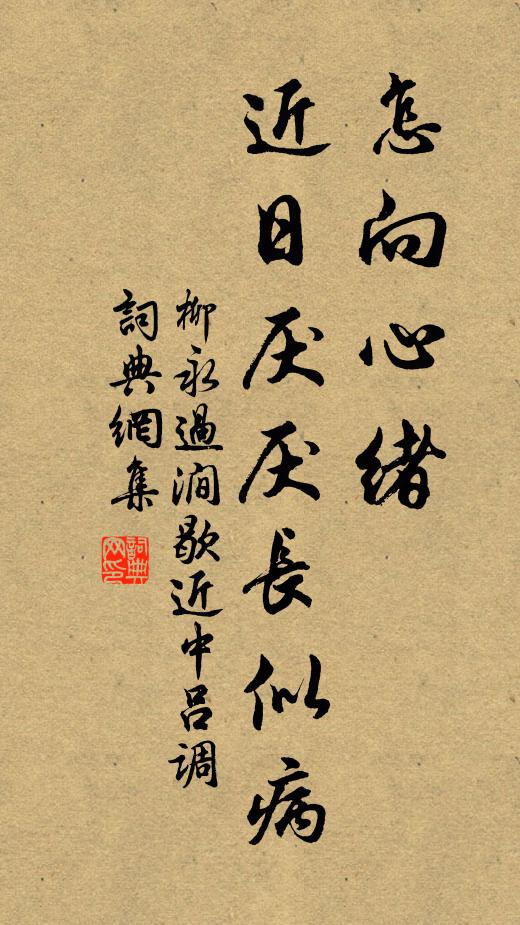 怎向心緒
近日厌厌長似病
柳永過澗歇近中呂調
詞典網集
詞典网印